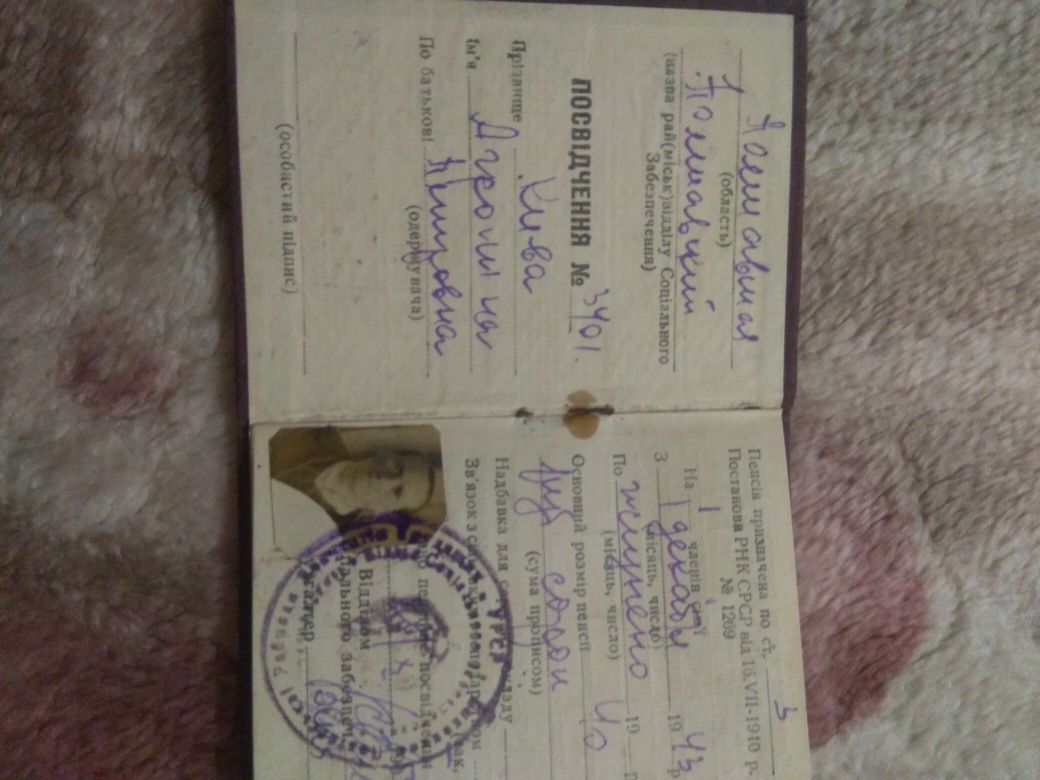 Полтавская
(область)
Полтавский
(назва рай(міськ)відділу Соціального
Забезпечення)
ПОСВІДЧЕННЯ № 3401.
Прізвище Кива
Ім'я
По батькові Петровна
(одержувача)
(особастий підпис)
Пенсія призначена по ст. 3
Постанови РНК СРСР від 16.VII-1940 р.
№ 1269
На 1 членів сім'ї
З 1 декабря 1943 р
(місяць, число)
По 19
(місяць, число)
Основний розмір пенсії 40
сорок
(сума прописом)
Надбавка для
Зв'язок з
посвідчення
Відділом
забезпеч